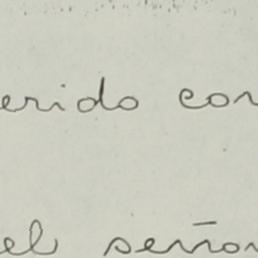 erido con
el señor